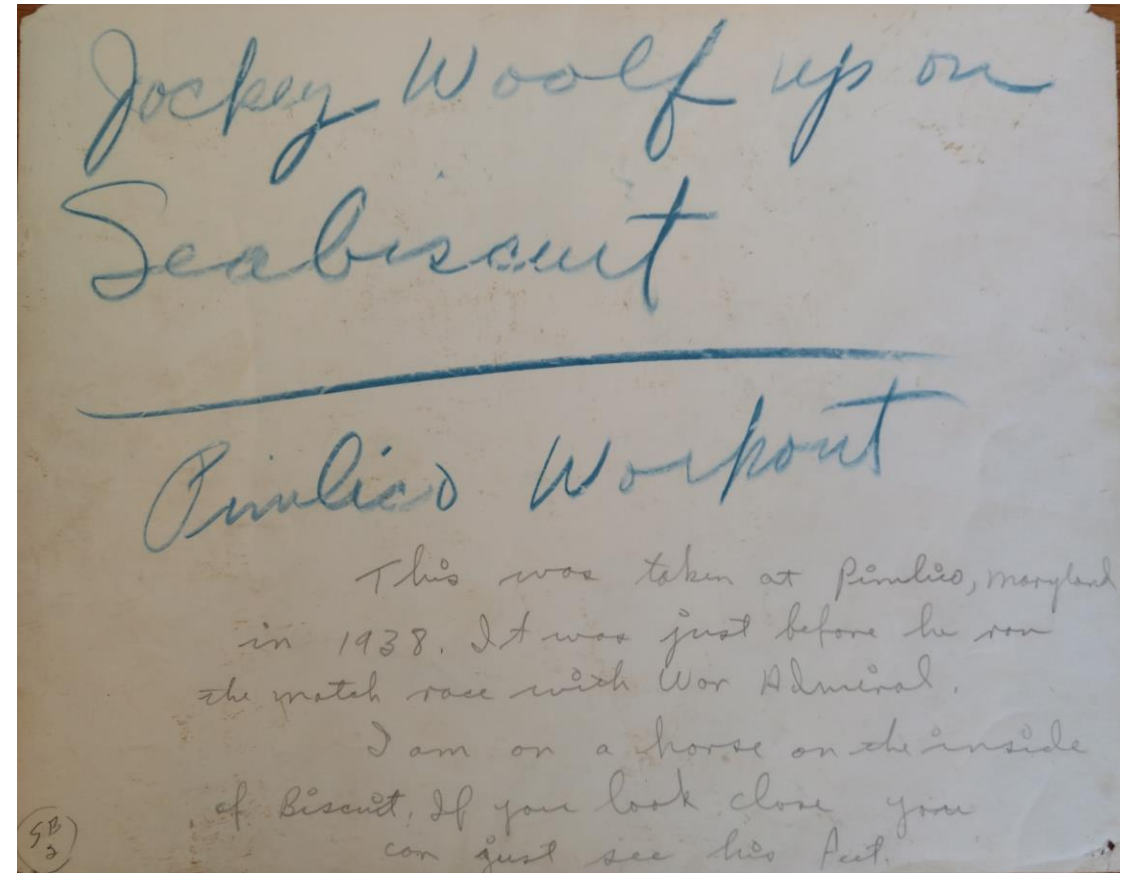 Jockey Woolf up on
Seabiscuit
Pimlico Workout
This was taken at Pimlico, Maryland
in 1938. It was just before he ran
the match race with War Admiral.
I am on a horse on the inside
of Biscuit. If you look close you
can just see his feet.
SB
2